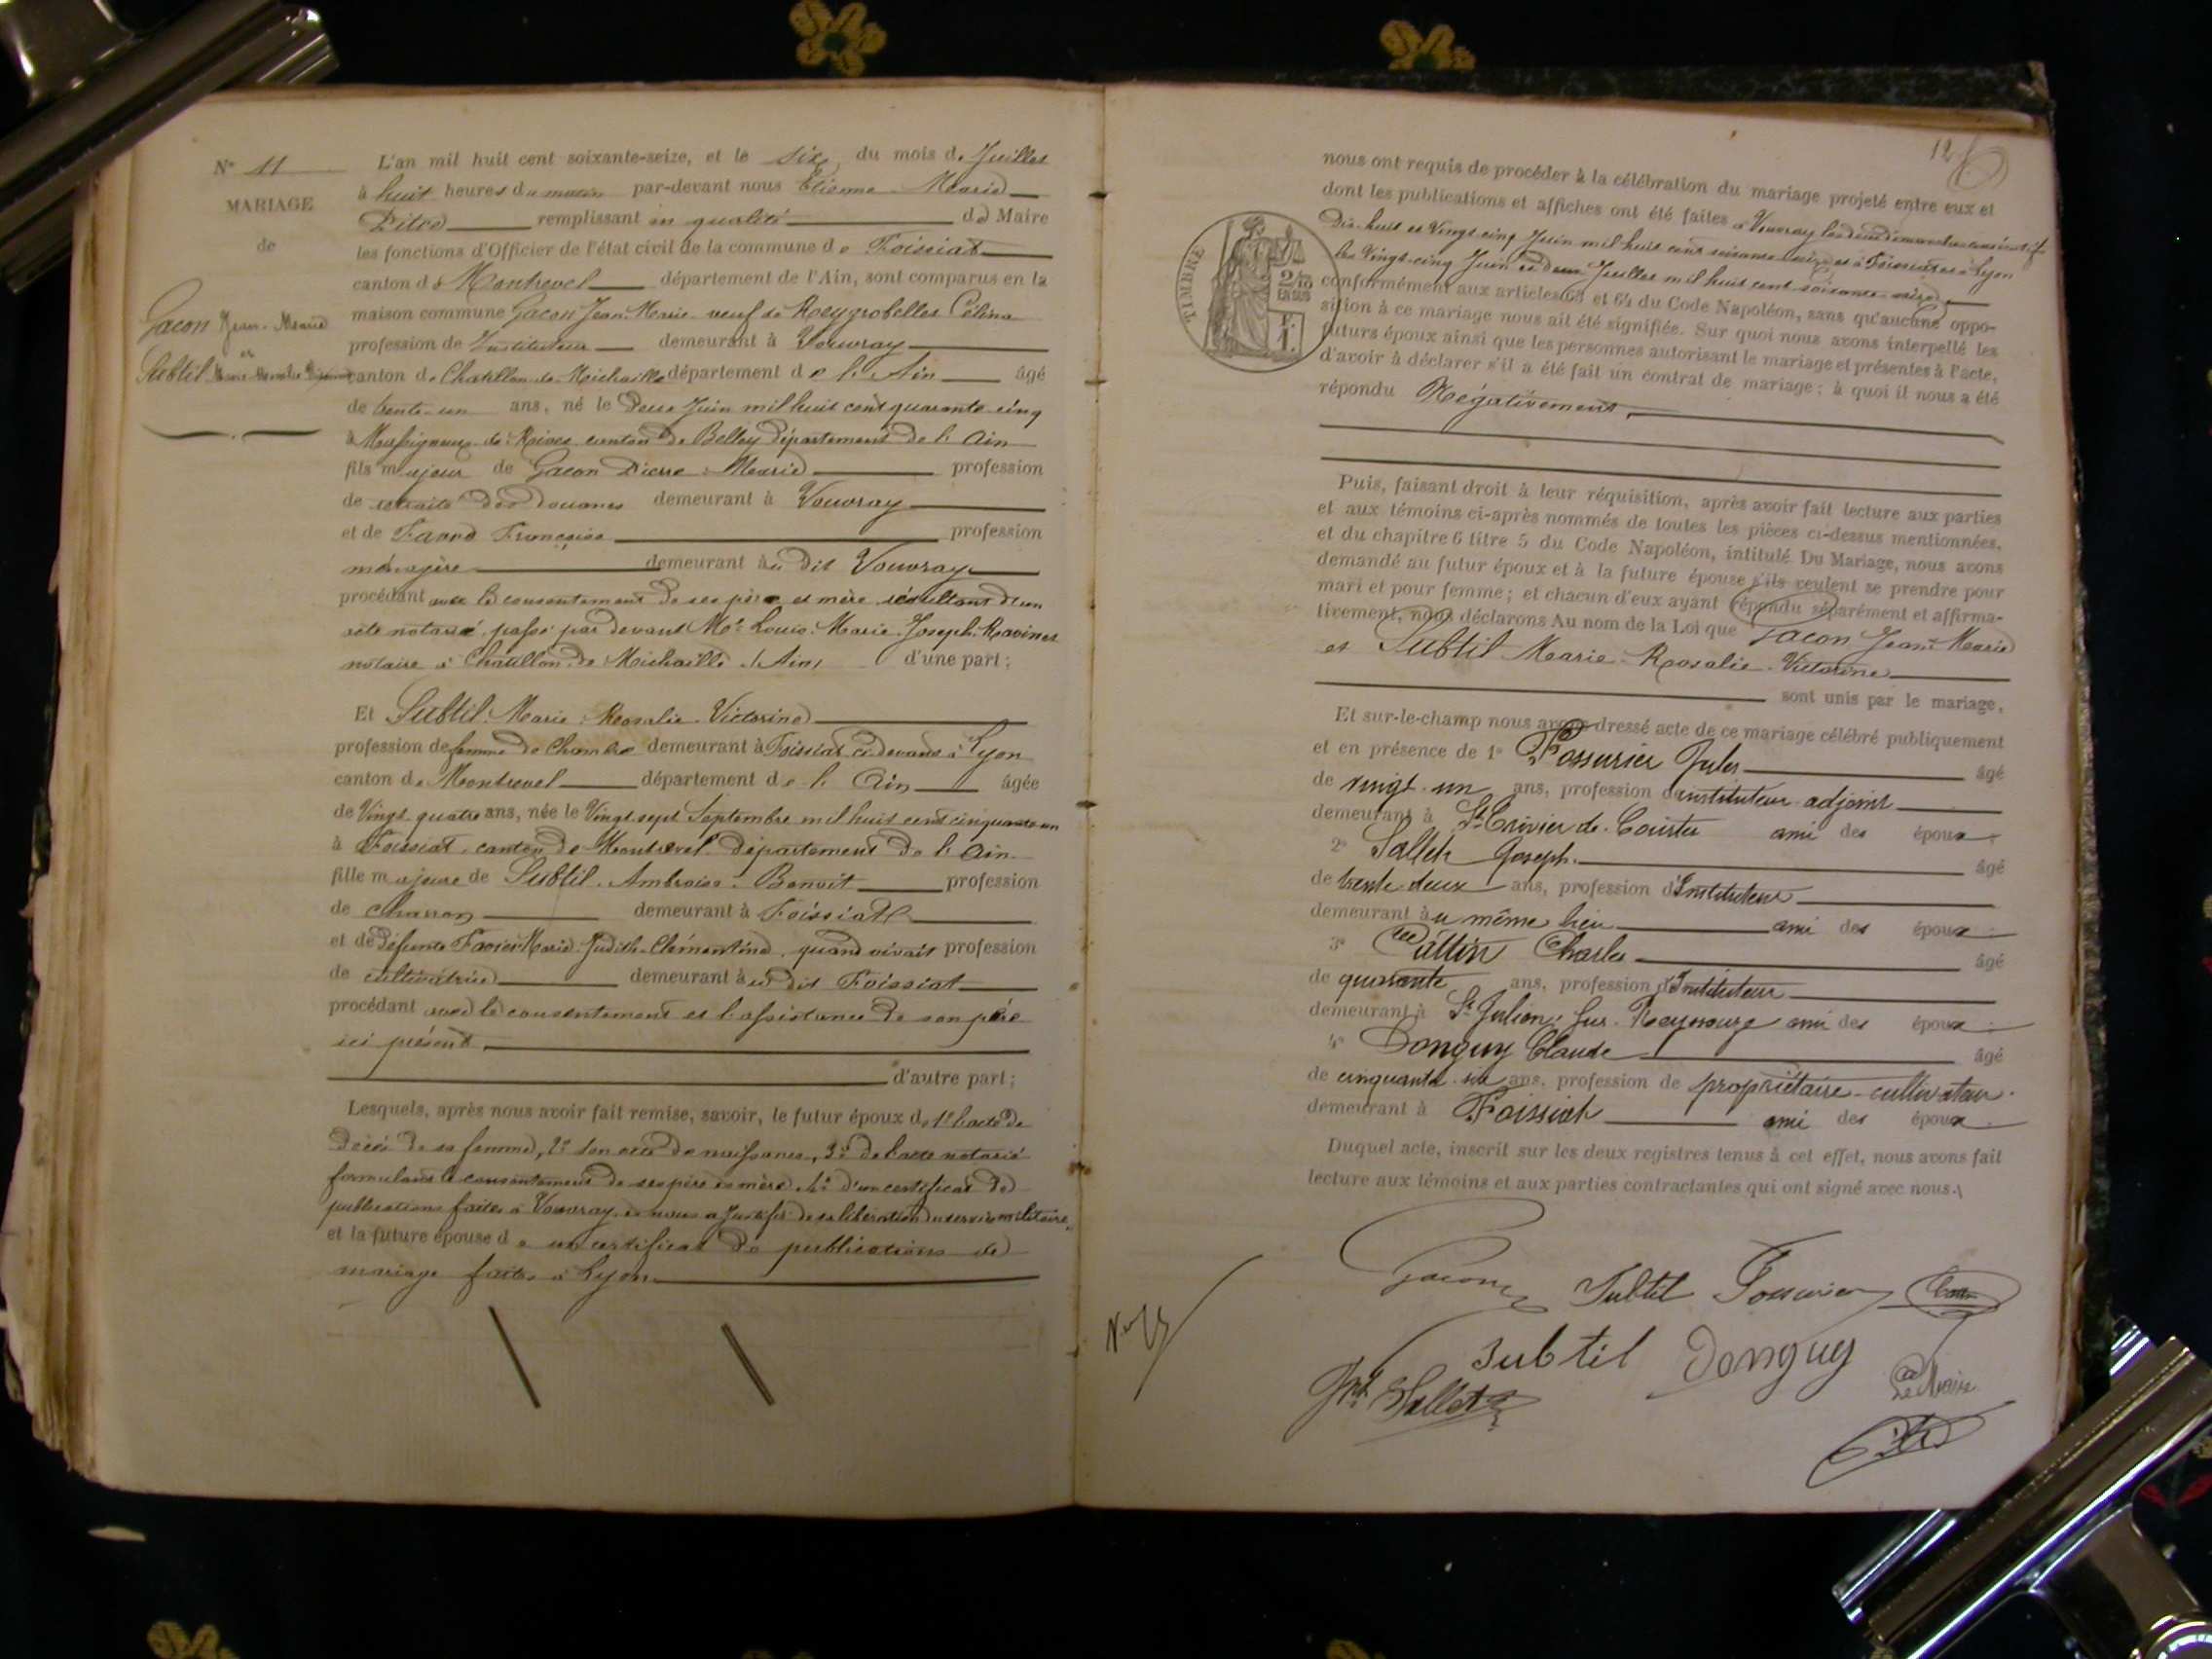 N° 11
MARIAGE
de
Gacon Jean-Marie
et
Subtil Marie Rosalie Victorine
L'an mil huit cent soixante-seize, et le six du mois de Juillet
à huit heures du matin par-devant nous Etienne Marie
Pitre remplissant en qualité de Maire
les fonctions d'Officier de l'état civil de la commune de Foissiat
canton de Montrevel département de l'Ain, sont comparus en la
maison commune Gacon Jean-Marie veuf de Célina
profession de Instituteur demeurant à Vouvray
canton de Chatillon-de-Michaille département de l'Ain âgé
de trente-un ans, né le Deux Juin mil huit cent quarante-cinq
à Massignieu-de-Rives canton de Belley département de l'Ain
fils majeur de Gacon Pierre-Marie profession
de retraité des douanes demeurant à Vouvray
et de Favre Françoise profession
ménagère demeurant au dit Vouvray
procédant avec le consentement de ses père et mère résultant d'un
acte notarié passé par devant Me Louis-Marie-Joseph Ravinet
notaire à Châtillon-de-Michaille (Ain) d'une part;
Et Subtil Marie-Rosalie-Victorine
profession de femme de Chambre demeurant à Foissiat ci-devant à Lyon
canton de Montrevel département de l'Ain âgée
de Vingt-quatre ans, née le Vingt-sept Septembre mil huit cent cinquante-un
à Foissiat canton de Montrevel département de l'Ain
fille majeure de Subtil Ambroise-Benoit profession
de charron demeurant à Foissiat
et de défunte Marie-Judith-Clémentine quand vivait profession
de cultivatrice demeurant au dit Foissiat
procédant avec le consentement et l'assistance de son père
ici présent
d'autre part;
Lesquels, après nous avoir fait remise, savoir, le futur époux de 1° l'acte de
décès de sa femme, 2° son acte de naissance, 3° de l'acte notarié
formulant le consentement de ses père et mère, 4° d'un certificat de
publications faites à Vouvray et nous a justifié de sa libération du service militaire,
et la future épouse de un certificat de publications de
mariage faites à Lyon
12
TIMBRE
2/10
EN SUS
nous ont requis de procéder à la célébration du mariage projeté entre eux et
dont les publications et affiches ont été faites à Vouvray les deux dimanches consécutifs
Dix-huit et Vingt-cinq Juin mil huit cent soixante-seize et à Foissiat et à Lyon
les Vingt-cinq Juin et deux Juillet mil huit cent soixante-seize
conformément aux articles 63 et 64 du Code Napoléon, sans qu'aucune oppo-
sition à ce mariage nous ait été signifiée. Sur quoi nous avons interpellé les
futurs époux ainsi que les personnes autorisant le mariage et présentes à l'acte,
d'avoir à déclarer s'il a été fait un contrat de mariage; à quoi il nous a été
répondu Négativement
Puis, faisant droit à leur réquisition, après avoir fait lecture aux parties
et aux témoins ci-après nommés de toutes les pièces ci-dessus mentionnées,
et du chapitre 6 titre 5 du Code Napoléon, intitulé Du Mariage, nous avons
demandé au futur époux et à la future épouse s'ils veulent se prendre pour
mari et pour femme; et chacun d'eux ayant répondu séparément et affirma-
tivement, nous déclarons Au nom de la Loi que Gacon Jean-Marie
et Subtil Marie-Rosalie-Victorine
sont unis par le mariage,
Et sur-le-champ nous avons dressé acte de ce mariage célébré publiquement
et en présence de 1° Fossurier Jules âgé
de vingt-un ans, profession d'instituteur-adjoint
demeurant à St Trivier-de-Courtes ami des époux
2° Sallet Joseph âgé
de trente-deux ans, profession d'Instituteur
demeurant au même lieu ami des époux
3° Charles âgé
de quarante ans, profession d'Instituteur
demeurant à St Julien-sur-Reyssouze ami des époux
4° Donguy Claude âgé
de cinquante-six ans, profession de propriétaire-cultivateur
demeurant à Foissiat ami des époux
Duquel acte, inscrit sur les deux registres tenus à cet effet, nous avons fait
lecture aux témoins et aux parties contractantes qui ont signé avec nous.
Gacon Subtil Fossurier
Subtil Donguy
Jh Sallet
Le Maire